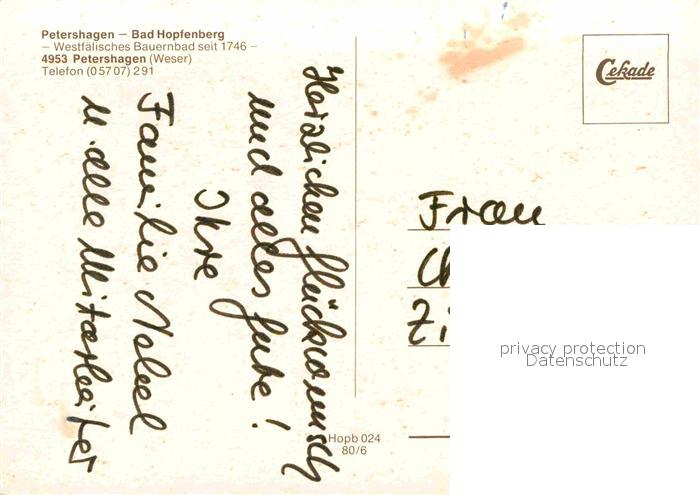 Petershagen – Bad Hopfenberg
– Westfälisches Bauernbad seit 1746 –
4953 Petershagen (Weser)
Telefon (0 57 07) 2 91
Herzlichen Glückwunsch
und alles Gute!
Ihre
Familie
u. alle Mitarbeiter
Cekade
Frau
privacy protection
Datenschutz
Hopb 024
80/6